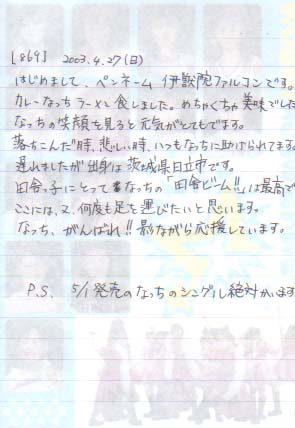 [869] 2003.4.27(日)
はじめまして、ペンネーム 伊獣院ファルコンです。
カレーなっちラーメン食しました。めちゃくちゃ美味でした
なっちの笑顔を見ると元気がとてもでます。
落ちこんだ時、悲しい時、いつもなっちに助けられてます
遅れましたが出身は茨城県日立市です。
田舎っ子にとってなっちの「田舎ビーム!!」は最高で
ここには、又、何度も足を運びたいと思います。
なっち、がんばれ!!影ながら応援しています。
P.S. 5/1発売のなっちのシングル絶対かいます